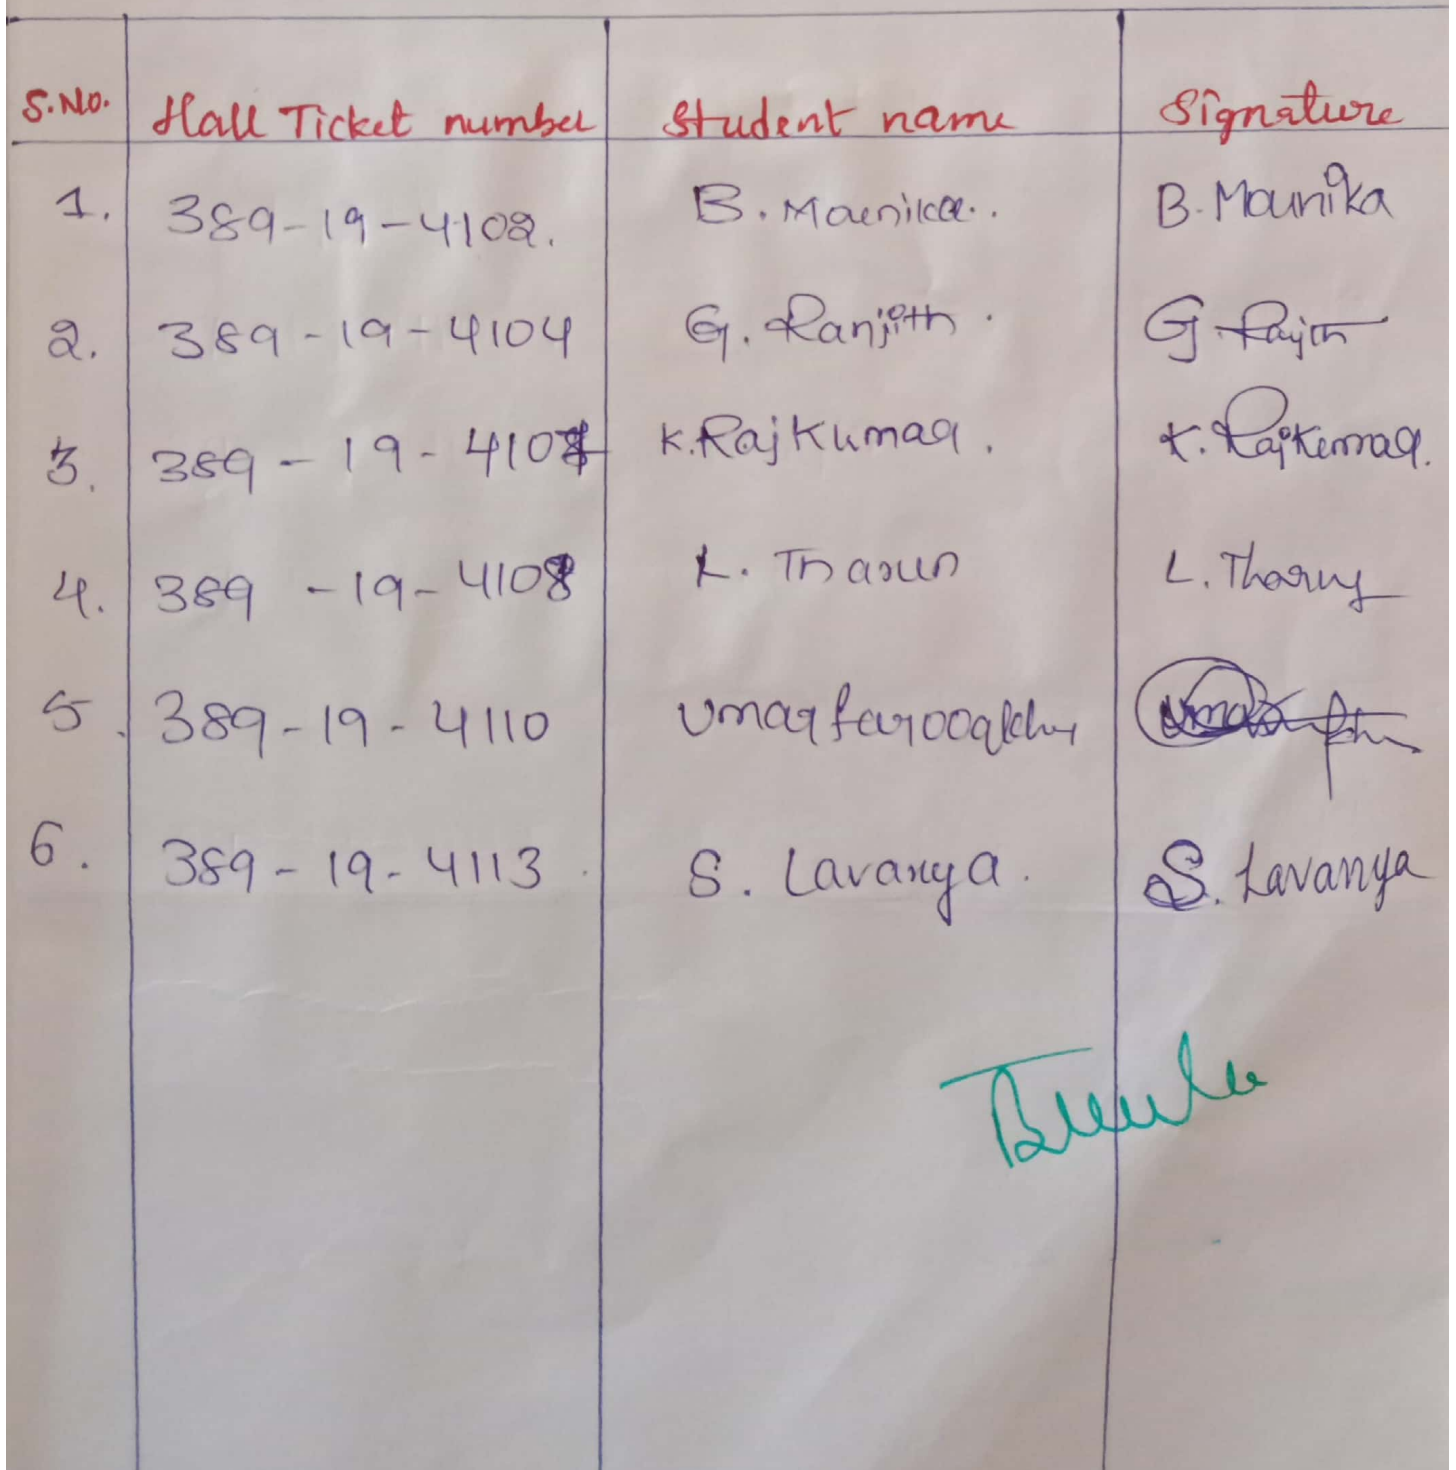 S.No. Hall Ticket number Student name Signature
1. 389-19-4102. B. Mounika.. B. Mounika
2. 389-19-4104 G. Ranjith. G. Rajith
3. 389-19-4107 K. Raj Kumar. K. Rajkumar.
4. 389-19-4108 L. Tharun L. Tharun
5. 389-19-4110 Umar farooq
6. 389-19-4113. S. Lavanya. S. Lavanya